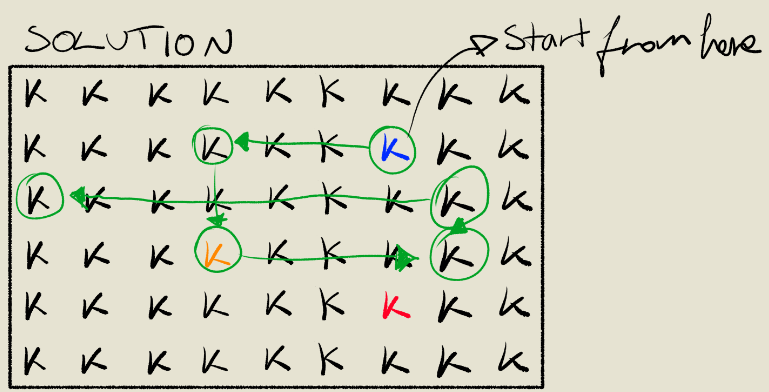 SOLUTION
Start from here
K K K K K K K K K
K K K K K K K K K
K K K K K K K K K
K K K K K K K K K
K K K K K K K K K
K K K K K K K K K